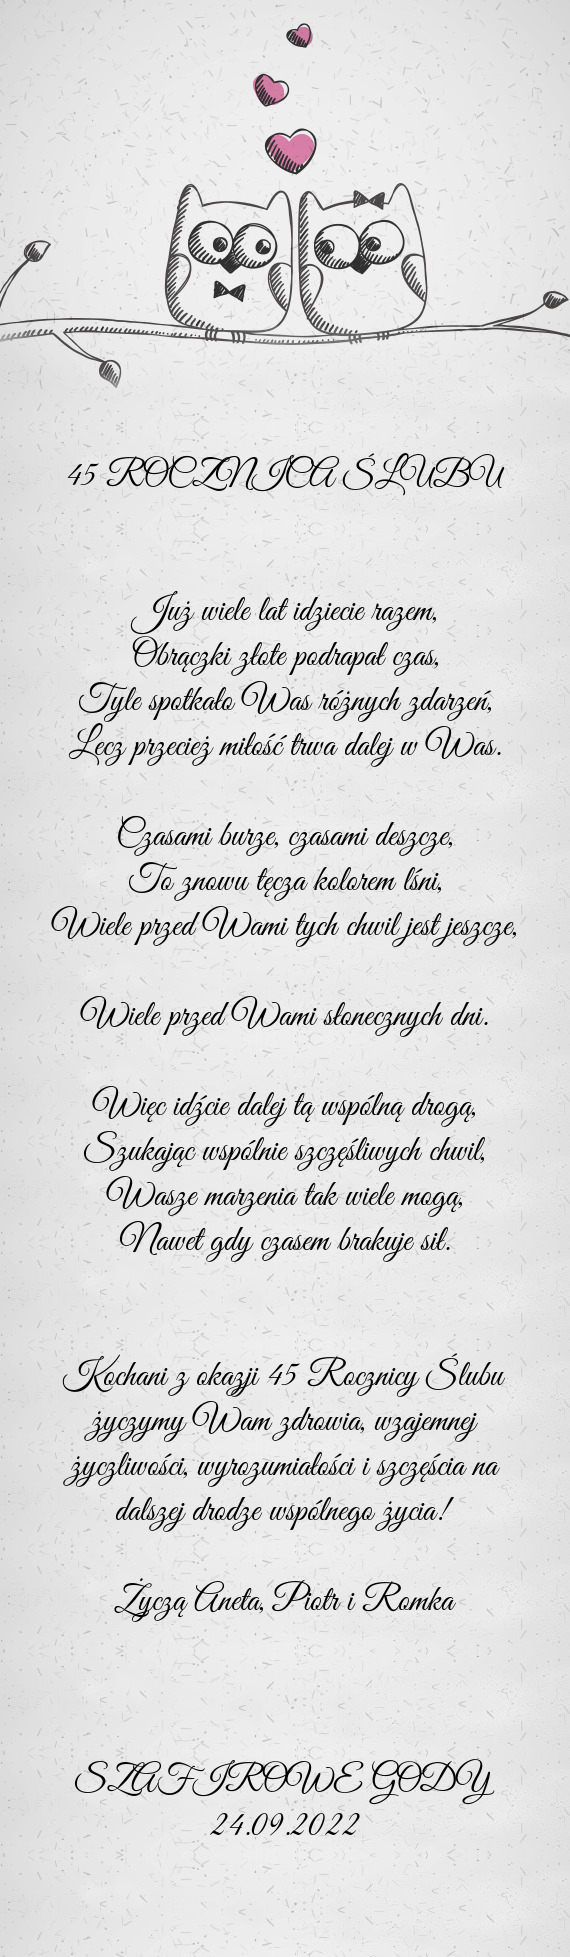 45 ROCZNICA ŚLUBU
Już wiele lat idziecie razem,
Obrączki złote podrapał czas,
Tyle spotkało Was różnych zdarzeń,
Lecz przecież miłość trwa dalej w Was.
Czasami burze, czasami deszcze,
To znowu tęcza kolorem lśni,
Wiele przed Wami tych chwil jest jeszcze,
Wiele przed Wami słonecznych dni.
Więc idźcie dalej tą wspólną drogą,
Szukając wspólnie szczęśliwych chwil,
Wasze marzenia tak wiele mogą,
Nawet gdy czasem brakuje sił.
Kochani z okazji 45 Rocznicy Ślubu
życzymy Wam zdrowia, wzajemnej
życzliwości, wyrozumiałości i szczęścia na
dalszej drodze wspólnego życia!
Życzą Aneta, Piotr i Romka
SZAFIROWE GODY
24.09.2022